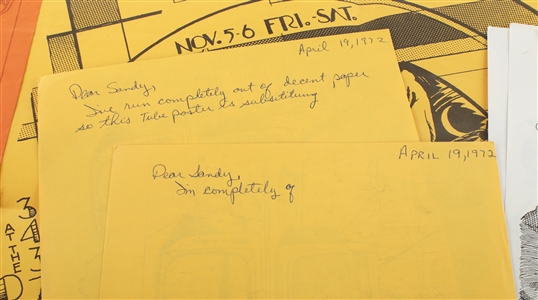 NOV. 5-6 FRI.-SAT.
April 19, 1972
Dear Sandy,
I've run completely out of decent paper
so this Tube poster is substituting
APRIL 19, 1972
Dear Sandy,
I'm completely of
3
4
3
AT THE